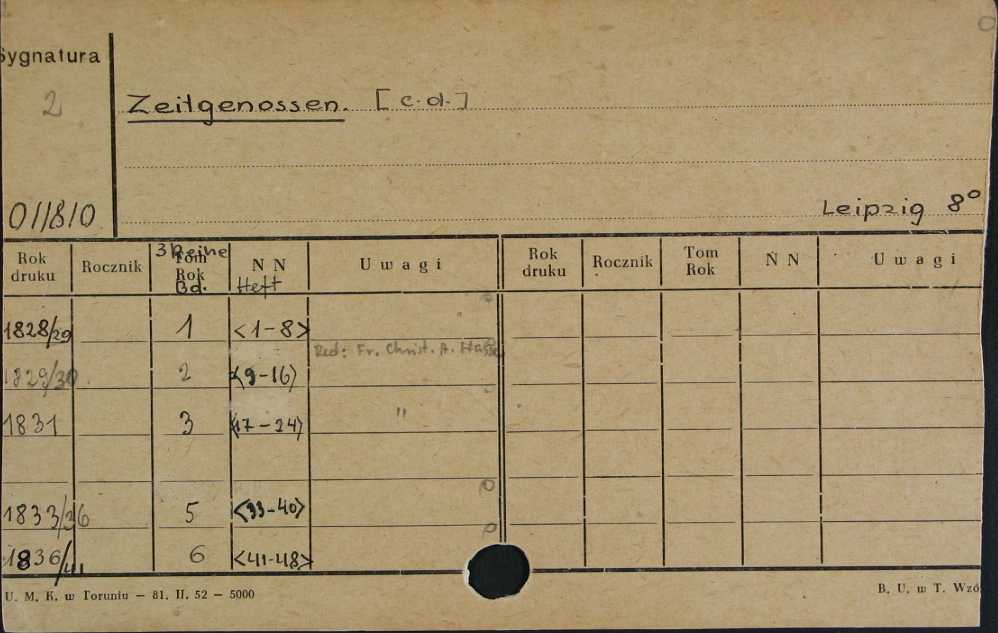 Sygnatura
2
Zeitgenossen. [c.d.]
011810
Leipzig 8°
Rok druku Rocznik 3 Reihe Tom Rok Bd. N N Heft Uwagi Rok druku Rocznik Tom Rok N N Uwagi
1828/29 1 <1-8>
Red: Fr. Christ. A. Hasse
1829/30 2 <9-16>
1831 3 <17-24> "
1833/36 5 <33-40>
1836/41 6 <41-48>
U. M. K. w Toruniu — 81. II. 52 — 5000
B. U. w T. Wzó